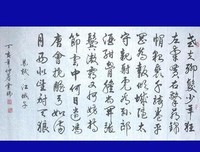 老夫聊發少年狂
左牽黃右擎蒼錦
帽貂裘千騎卷平
岡為報傾城隨太
守親射虎看孫郎
酒酣胸膽尚開張
鬢微霜又何妨持
節雲中何日遣馮
唐會挽雕弓如滿
月西北望射天狼
蘇軾 江城子
丁亥年